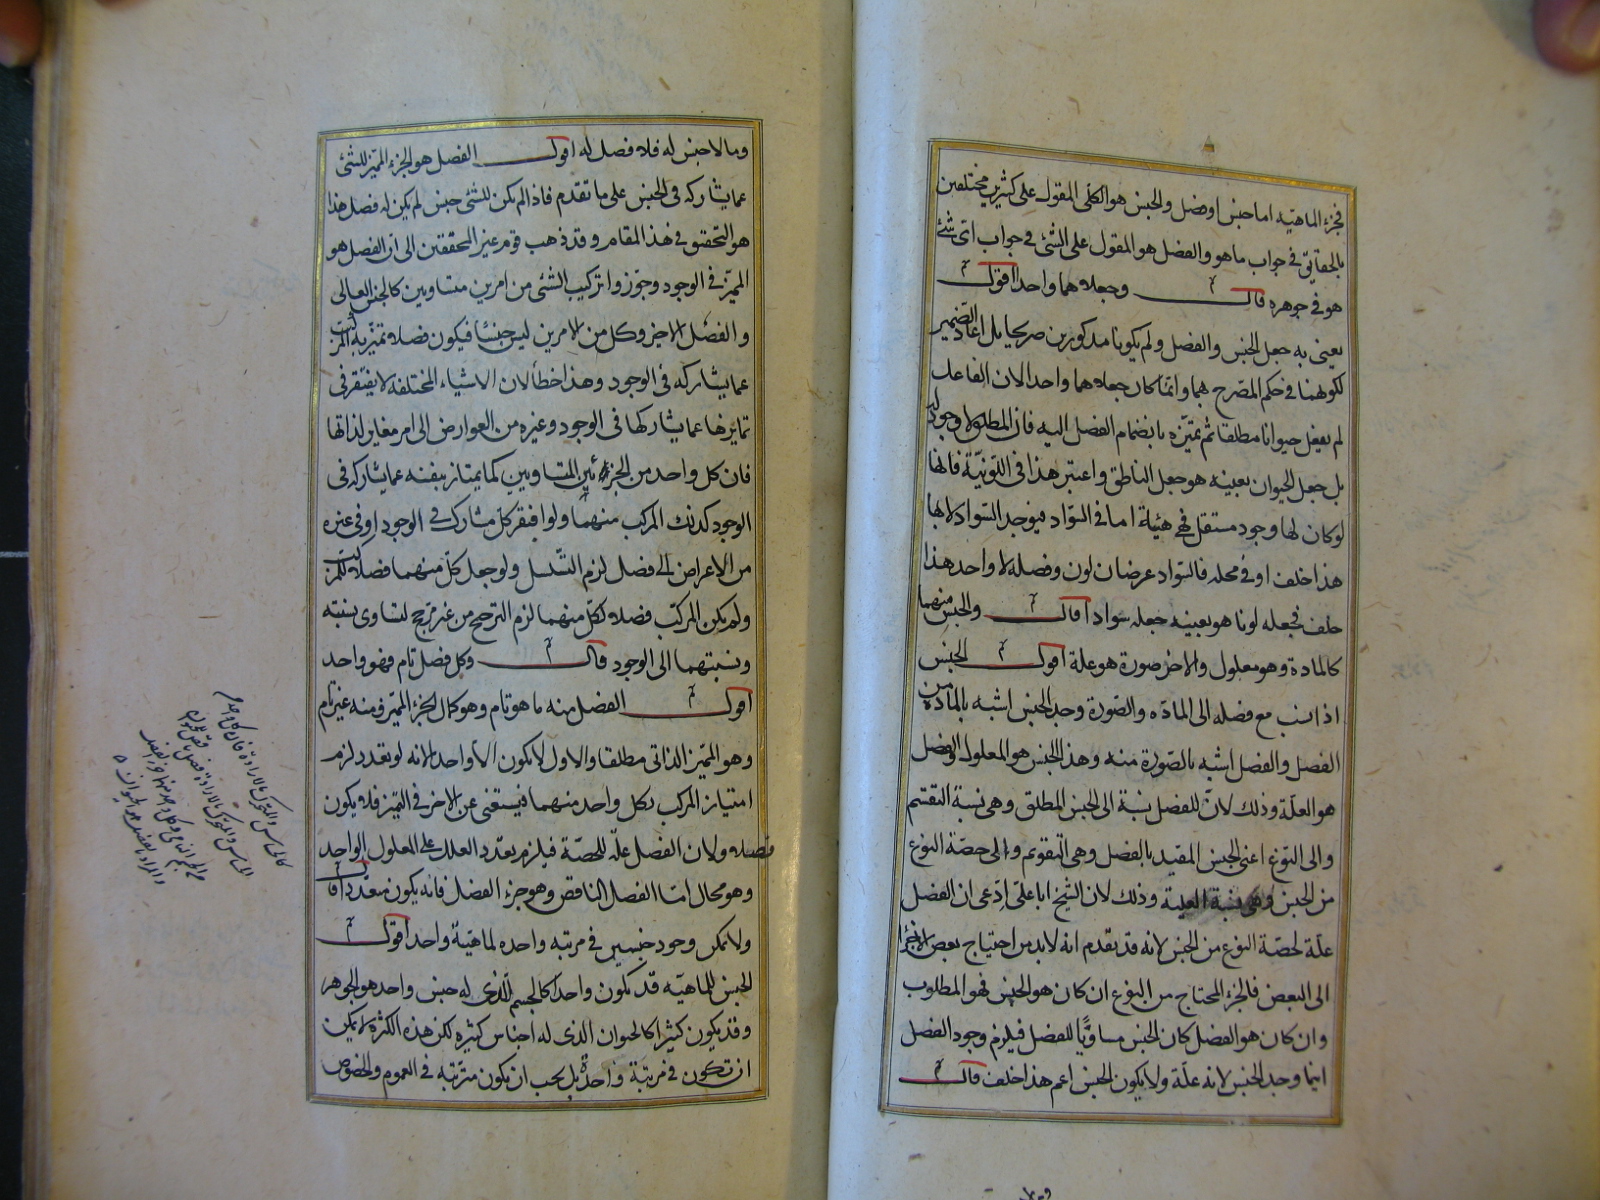 فجزء الماهية اما جنس او فصل والجنس هو الكلى المقول على كثيرين مختلفين
بالحقايق فى جواب ما هو والفصل هو المقول على الشئ فى جواب اى شئ
هو فى جوهره قال وجعلاهما واحد اقول
يعنى به جعل الجنس والفصل ولم يكونا مذكورين صريحا بل اعاد الضمير
لكونهما فى حكم المصرح بهما وانما كان جعلاهما واحدا لان الفاعل
لم يفعل حيوانا مطلقا ثم تميزه بانضمام الفصل اليه فان المطلق لا وجود له
بل جعل الحيوان بعينه هو جعل الناطق واعتبر هذا فى اللونية فانها
لو كان لها وجود مستقل فهى هيئة اما فى السواد فيوجد السواد لا بها
هذا خلف او فى محله فالسواد عرضان لون وفصله لا واحد هذا
خلف فجعله لونا هو بعينه جعله سوادا قال والجنس منهما
كالمادة وهو معلول والاخر صورة هو علة اقول الجنس
اذا نسب مع فصله الى المادة والصورة وجد الجنس اشبه بالمادة من
الفصل والفصل اشبه بالصورة منه وهذا الجنس هو المعلول والفصل
هو العلة وذلك لان للفصل نسبة الى الجنس المطلق وهى نسبة التقسيم
والى النوع اعنى الجنس المقيد بالفصل وهى التقويم والى حصة النوع
من الجنس وهى نسبة العلية وذلك لان الشيخ ابا على ادعى ان الفصل
علة لحصة النوع من الجنس لانه قد تقدم انه لا بد من احتياج بعض الاجزاء
الى البعض فالجزء المحتاج من النوع ان كان هو الجنس فهو المطلوب
وان كان هو الفصل كان الجنس مساويا للفصل فيلزم وجود الفصل
اينما وجد الجنس لانه علة ولا يكون الجنس اعم هذا خلف قال
وما لا جنس له فلا فصل له اقول الفصل هو الجزء المميز للشئ
عما يشاركه فى الجنس على ما تقدم فاذا لم يكن للشئ جنس لم يكن له فصل هذا
هو التحقيق فى هذا المقام وقد ذهب قوم غير المحققين الى ان الفصل هو
المميز فى الوجود وجوزوا تركيب الشئ من امرين متساويين كالجنس العالى
والفصل الاخير وكل من الامرين ليس جنسا فيكون فصلا تميز به المركب
عما يشاركه فى الوجود وهذا خطأ لان الاشياء المختلفة لا يفتقر فى
تمايزها عما يشاركها فى الوجود وغيره من العوارض الى امر مغاير لذاتها
فان كل واحد من الجزئين المتساويين كما يمتاز بنفسه عما يشاركه فى
الوجود كذلك المركب منهما ولو افتقر كل مشارك فى الوجود او فى غيره
من الاعراض الى فصل لزم التسلسل ولو جعل كل منهما فصلا للمركب
ولم يكن المركب فصلا لكل منهما لزم الترجيح من غير مرجح لتساوى نسبته
ونسبتهما الى الوجود قال وكل فصل تام فهو واحد
اقول الفصل منه ما هو تام وهو كمال الجزء المميز ومنه غير تام
وهو المميز الذاتى مطلقا والاول لا يكون الا واحدا لانه لو تعدد لزم
امتياز المركب بكل واحد منهما فيستغنى عن الاخر فى التميز فلا يكون
فصلا ولان الفصل علة للحصة فيلزم تعدد العلل على المعلول الواحد
وهو محال اما الفصل الناقص وهو جزء الفصل فانه يكون متعددا قال
ولا يمكن وجود جنسين فى مرتبة واحدة لماهية واحدة اقول
الجنس للماهية قد يكون واحدا كالجسم الذى له جنس واحد هو الجوهر
وقد يكون كثيرا كالحيوان الذى له اجناس كثيرة لكن هذه الكثرة لا يمكن
ان تكون فى مرتبة واحدة بل يجب ان يكون مترتبة فى العموم والخصوص